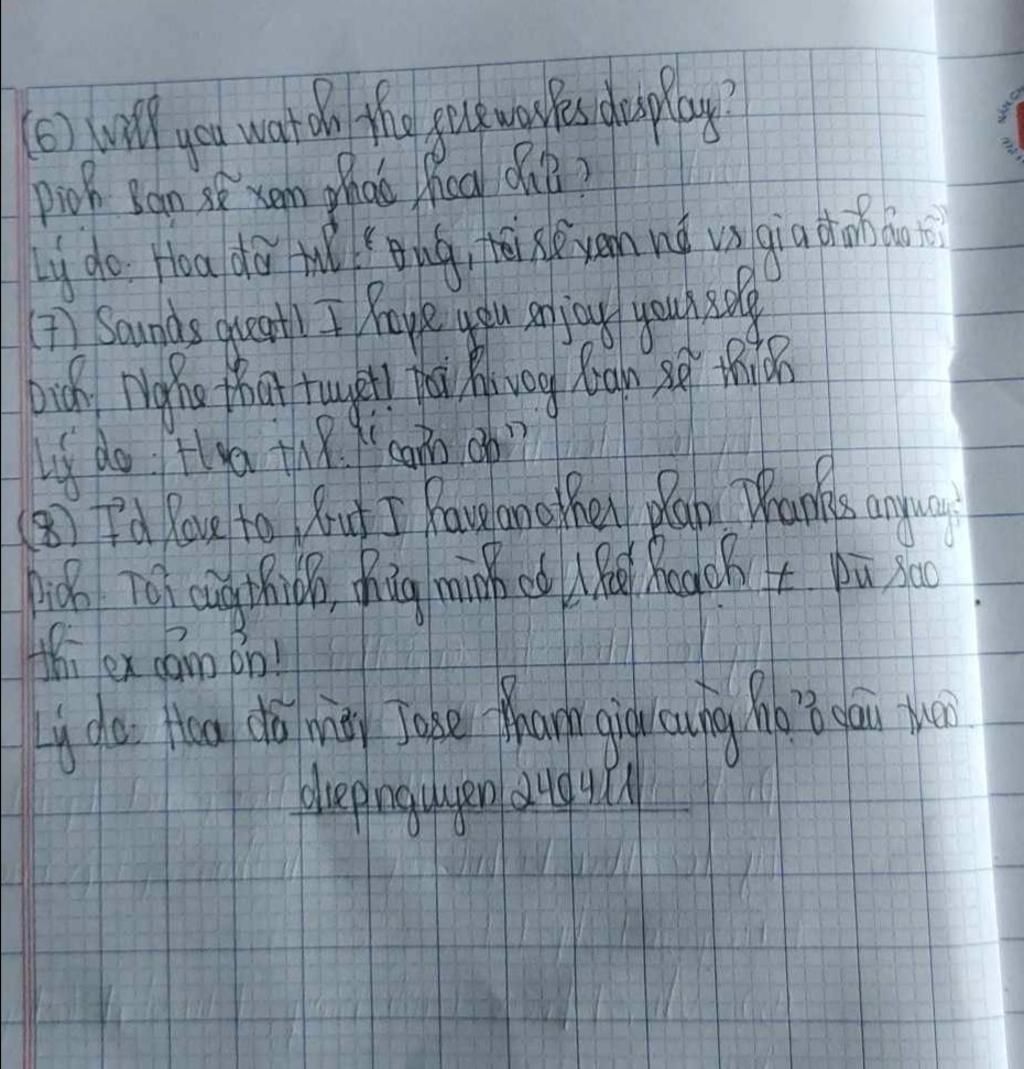 (6) Will you watch the fireworks display?
Dịch Bạn sẽ xem pháo hoa chứ?
Lý do: Hoa đã tnl: "Đúng, tôi sẽ xem nó vs gia đình của tôi"
(7) Sounds great! I hope you enjoy yourself
Dịch Nghe thật tuyệt! Tôi hi vọg bạn sẽ thích
Lý do: Hoa tnl: "cảm ơn"
(8) I'd love to, but I have another plan. Thanks anyway!
Dịch Tôi cũg thích, nhưg mình có kế hoạch ≠ Dù sao
thì cx cảm ơn!
Lý do: Hoa đã mời Jose tham gia cùng họ ở câu trên
diepnguyen